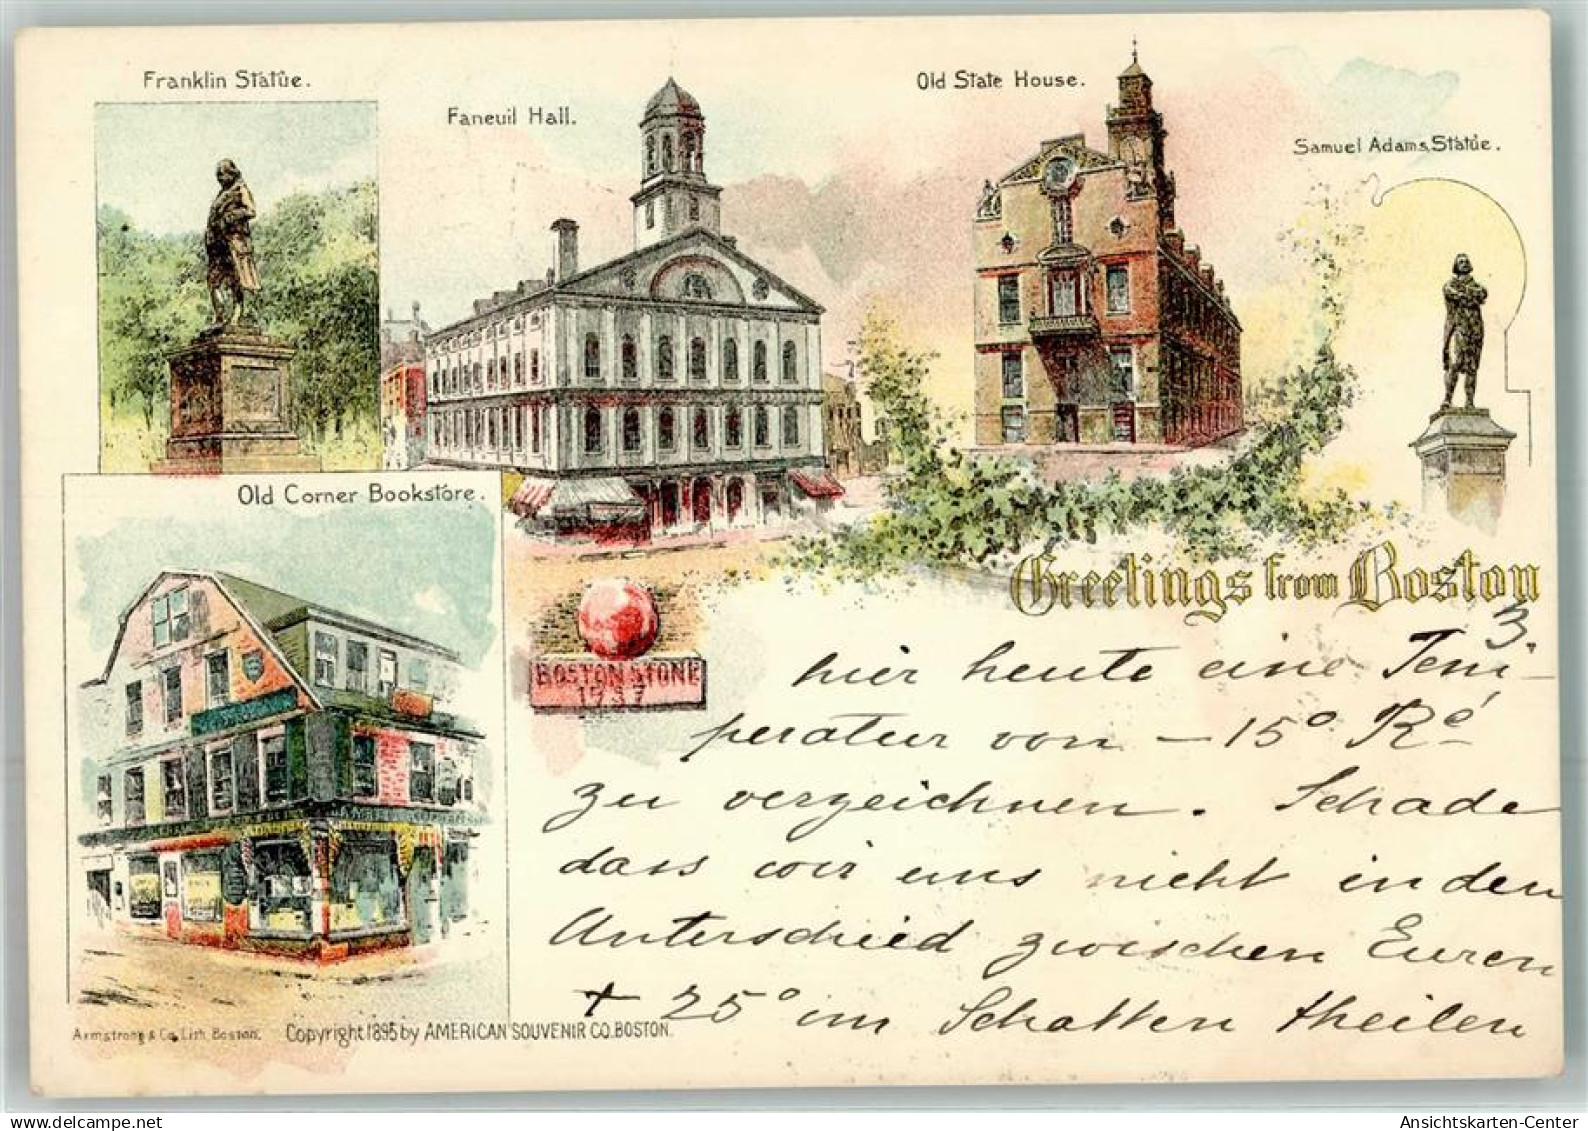 Franklin Statue.
Faneuil Hall.
Old State House.
Samuel Adams Statue.
Old Corner Bookstore.
BOSTON STONE
1737
Greetings from Boston
3.
hier heute eine Tem-
peratur von – 15° Ré
zu verzeichnen. Schade
dass wir uns nicht in den
Unterschied zwischen Euren
+ 25° im Schatten theilen
Armstrong & Co. Lith. Boston.
Copyright 1895 by AMERICAN SOUVENIR CO. BOSTON.
Ansichtskarten-Center